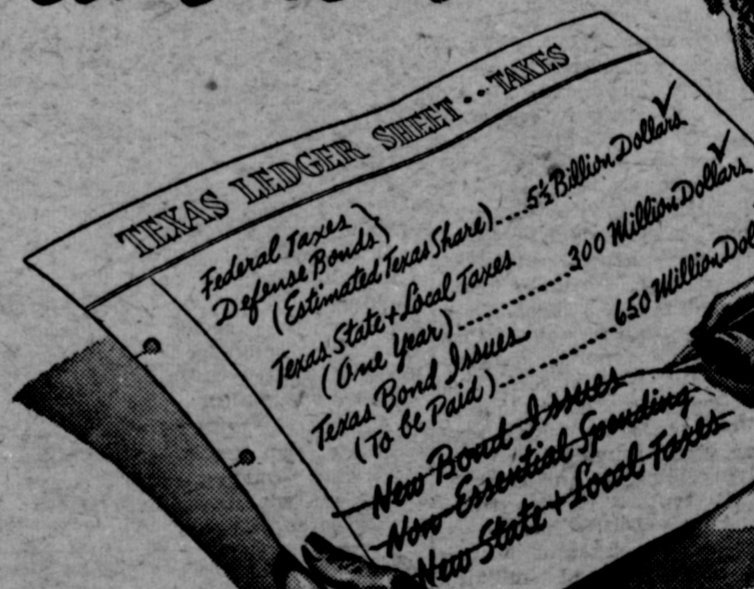 TEXAS LEDGER SHEET .. TAXES
Federal Taxes }
Defense Bonds }
(Estimated Texas Share)....5½ Billion Dollars ✓
Texas State + Local Taxes
(One Year)..............300 Million Dollars ✓
Texas Bond Issues
(To be Paid)..............650 Million
New Bond Issues
Non Essential Spending
New State + Local Taxes